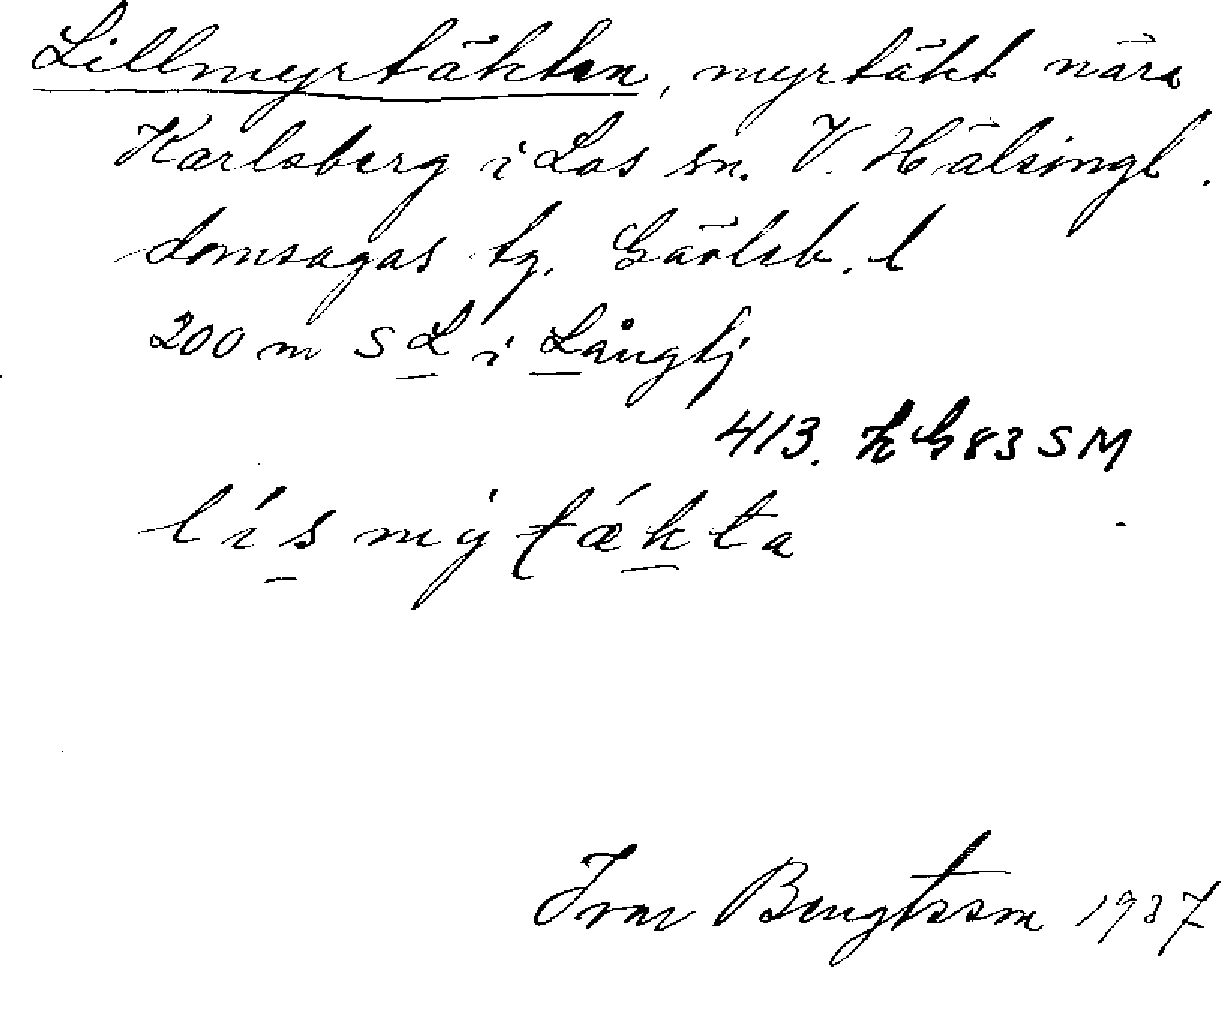 Lillmyrtäkten, myrtäkt nära
Karlsberg i Los sn. V. Hälsingl.
domsagas tg. Gävleb. l
200 m S L i Långtj
413. 83 SM
lísmýtǽkta
Ivar Bengtsson 1937